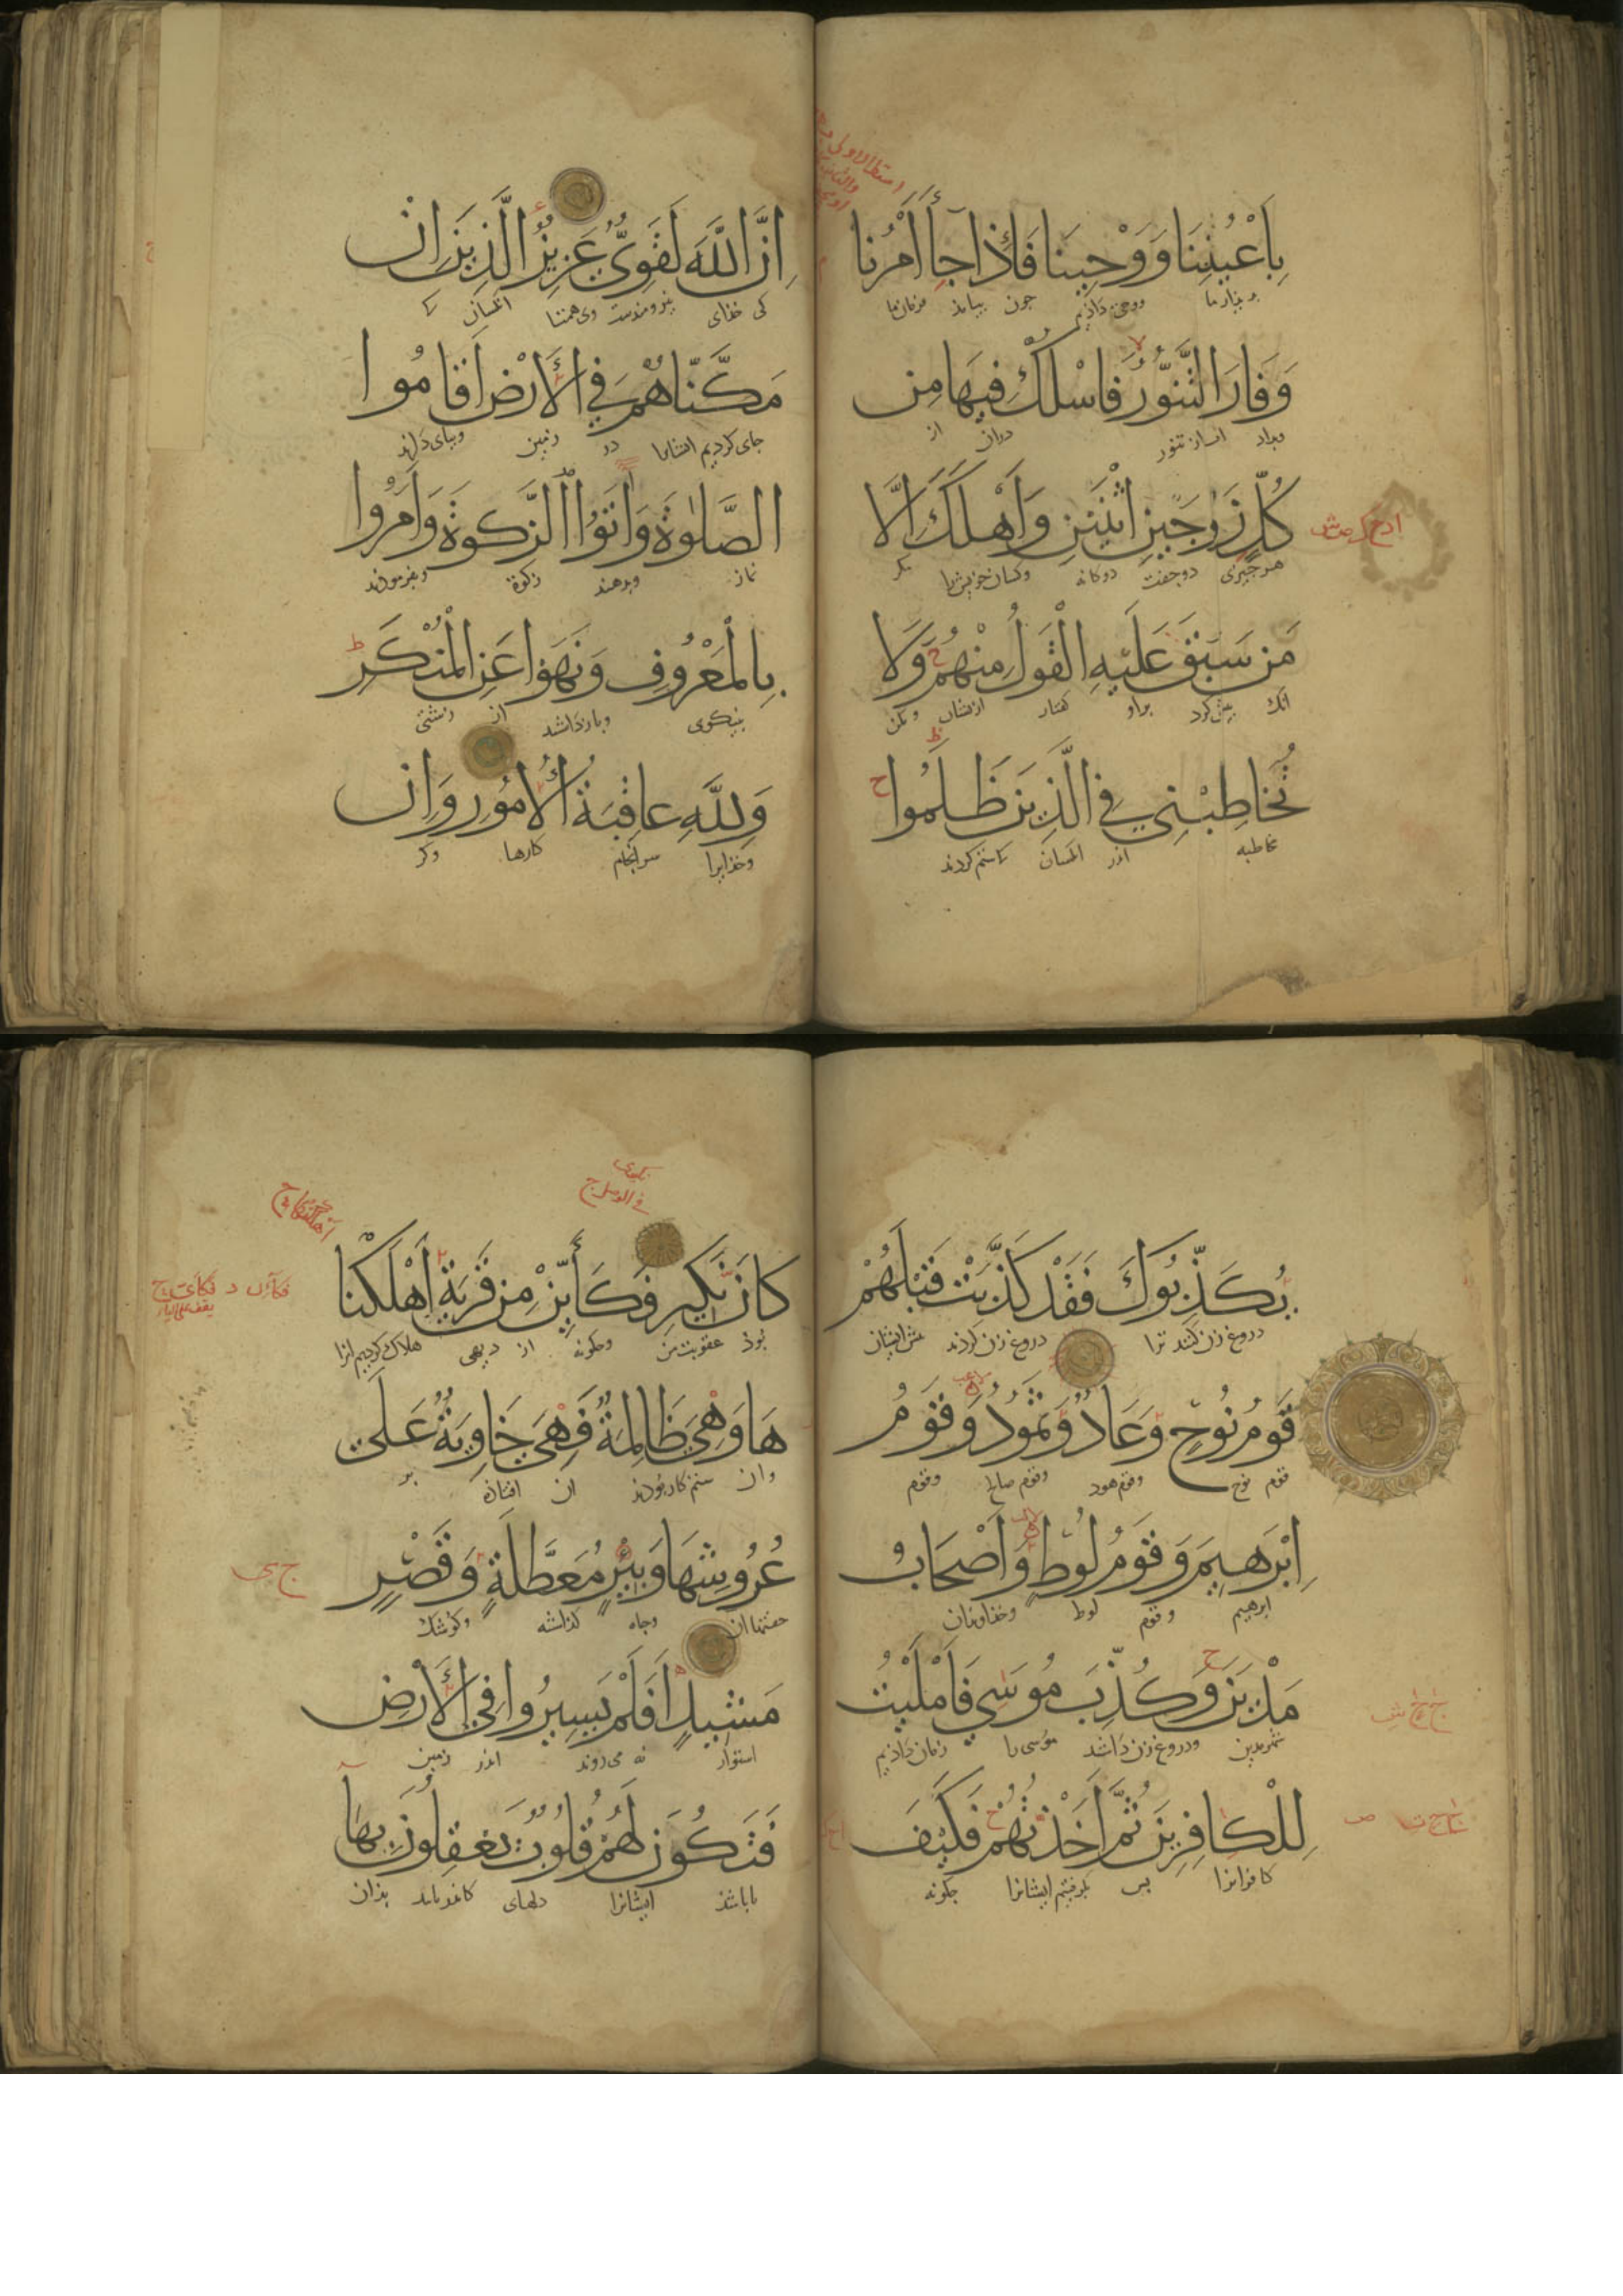 بِأَعْيُنِنَا وَوَحْيِنَا فَإِذَا جَا أَمْرُنَا
ووحی داذیم چون بیاید فرمان ما
وَفَارَ التَّنُّورُ فَاسْلُكْ فِيهَا مِن
تنور دران از
كُلٍّ زَوْجَيْنِ اثْنَيْنِ وَأَهْلَكَ إِلَّا
هر چیزی دو جفت دوکانه وکسان خویش را مکر
مَن سَبَقَ عَلَيْهِ الْقَوْلُ مِنْهُمْ وَلَا
انک پیش کرد براو کفتار ازیشان ومکن
تُخَاطِبْنِي فِي الَّذِينَ ظَلَمُوا
مخاطبه اندر انکسان که ستم کردند
إِنَّ اللَّهَ لَقَوِيٌّ عَزِيزٌ الَّذِينَ إِن
کی خذای نیرومندست وبی همتا انکسان که
مَكَّنَّاهُمْ فِي الْأَرْضِ أَقَامُوا
جای کردیم ایشانرا در زمین وبپای دارند
الصَّلَوٰةَ وَآتَوُا الزَّكَوٰةَ وَأَمَرُوا
نماز وبدهند زکوة وبفرمودند
بِالْمَعْرُوفِ وَنَهَوْا عَنِ الْمُنْكَرِ
بنیکوی وبازداشتند از زشتی
وَلِلَّهِ عَاقِبَةُ الْأُمُورِ وَإِن
وخذایرا سرانجام کارها وکر
يُكَذِّبُوكَ فَقَدْ كَذَّبَتْ قَبْلَهُمْ
دروغ زن کنند ترا دروغ زن کردند پیش ازیشان
قَوْمُ نُوحٍ وَعَادٌ وَثَمُودُ وَقَوْمُ
قوم نوح وقوم هود وقوم صالح وقوم
إِبْرَهِيمَ وَقَوْمُ لُوطٍ وَأَصْحَابُ
ابرهیم وقوم لوط وخذاوندان
مَدْيَنَ وَكُذِّبَ مُوسَى فَأَمْلَيْتُ
شهر مدین ودروغ زن داشتند موسی را زمان داذیم
لِلْكَافِرِينَ ثُمَّ أَخَذْتُهُمْ فَكَيْفَ
کافرانرا پس بکرفتیم ایشانرا چکونه
كَانَ نَكِيرِ فَكَأَيِّنْ مِنْ قَرْيَةٍ أَهْلَكْنَا
بوذ عقوبت من وچکونه از دیهی هلاک کردیم انرا
هَا وَهِيَ ظَالِمَةٌ فَهِيَ خَاوِيَةٌ عَلَى
وان ستم کار بودند ان افتاذه بر
عُرُوشِهَا وَبِئْرٍ مُعَطَّلَةٍ وَقَصْرٍ
وچاه کذاشته وکوشک
مَشِيدٍ أَفَلَمْ يَسِيرُوا فِي الْأَرْضِ
استوار نه می روند اندر زمین
فَتَكُونَ لَهُمْ قُلُوبٌ يَعْقِلُونَ بِهَا
تا باشد ایشانرا دلهای بذان